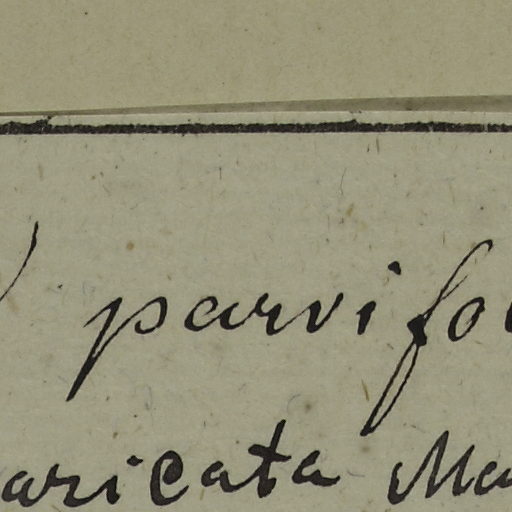 parvifo
aricata Ma